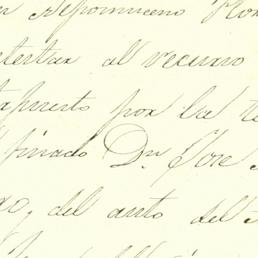 n Nepomuceno Flor
ntestar al recurso
tapuesto por la te
finado Dn. Jose
go, del auto del